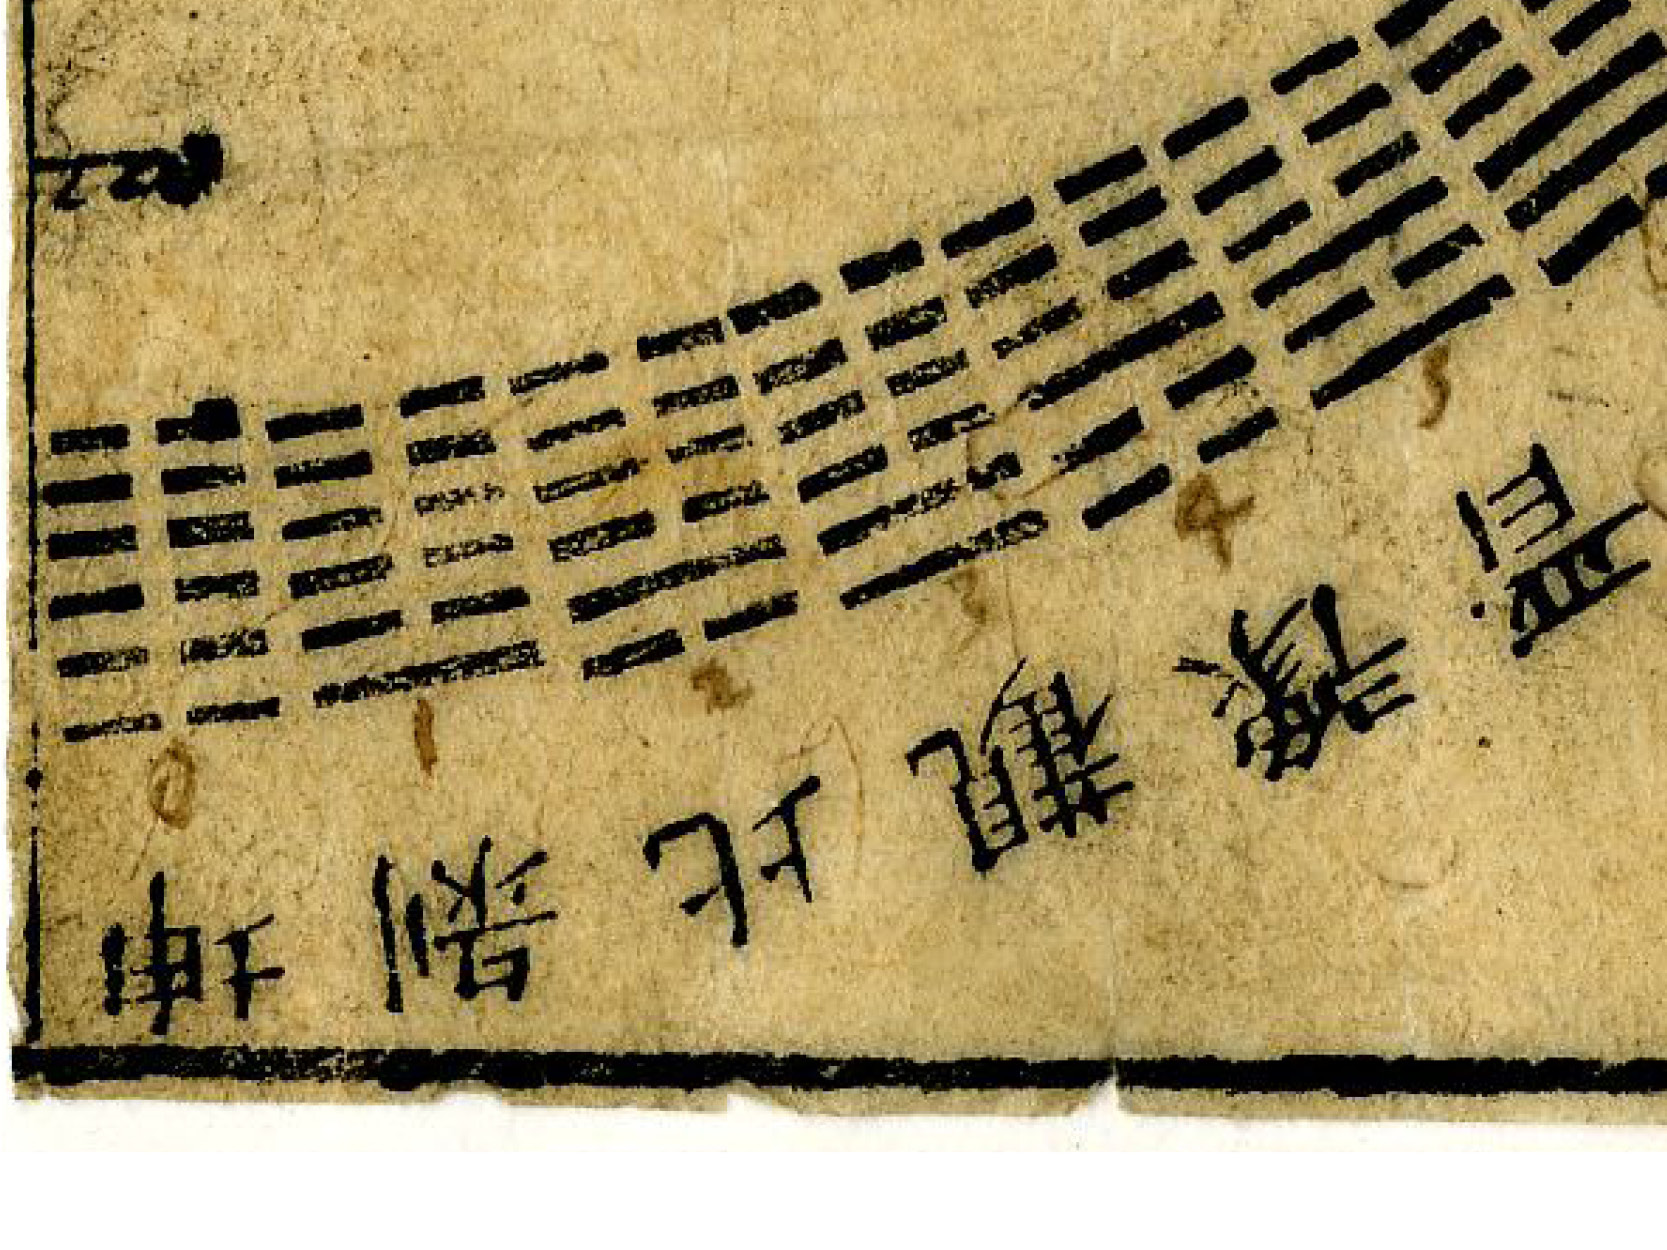 0 1 2 3 4 5
坤 剝 比 觀 豫 晉